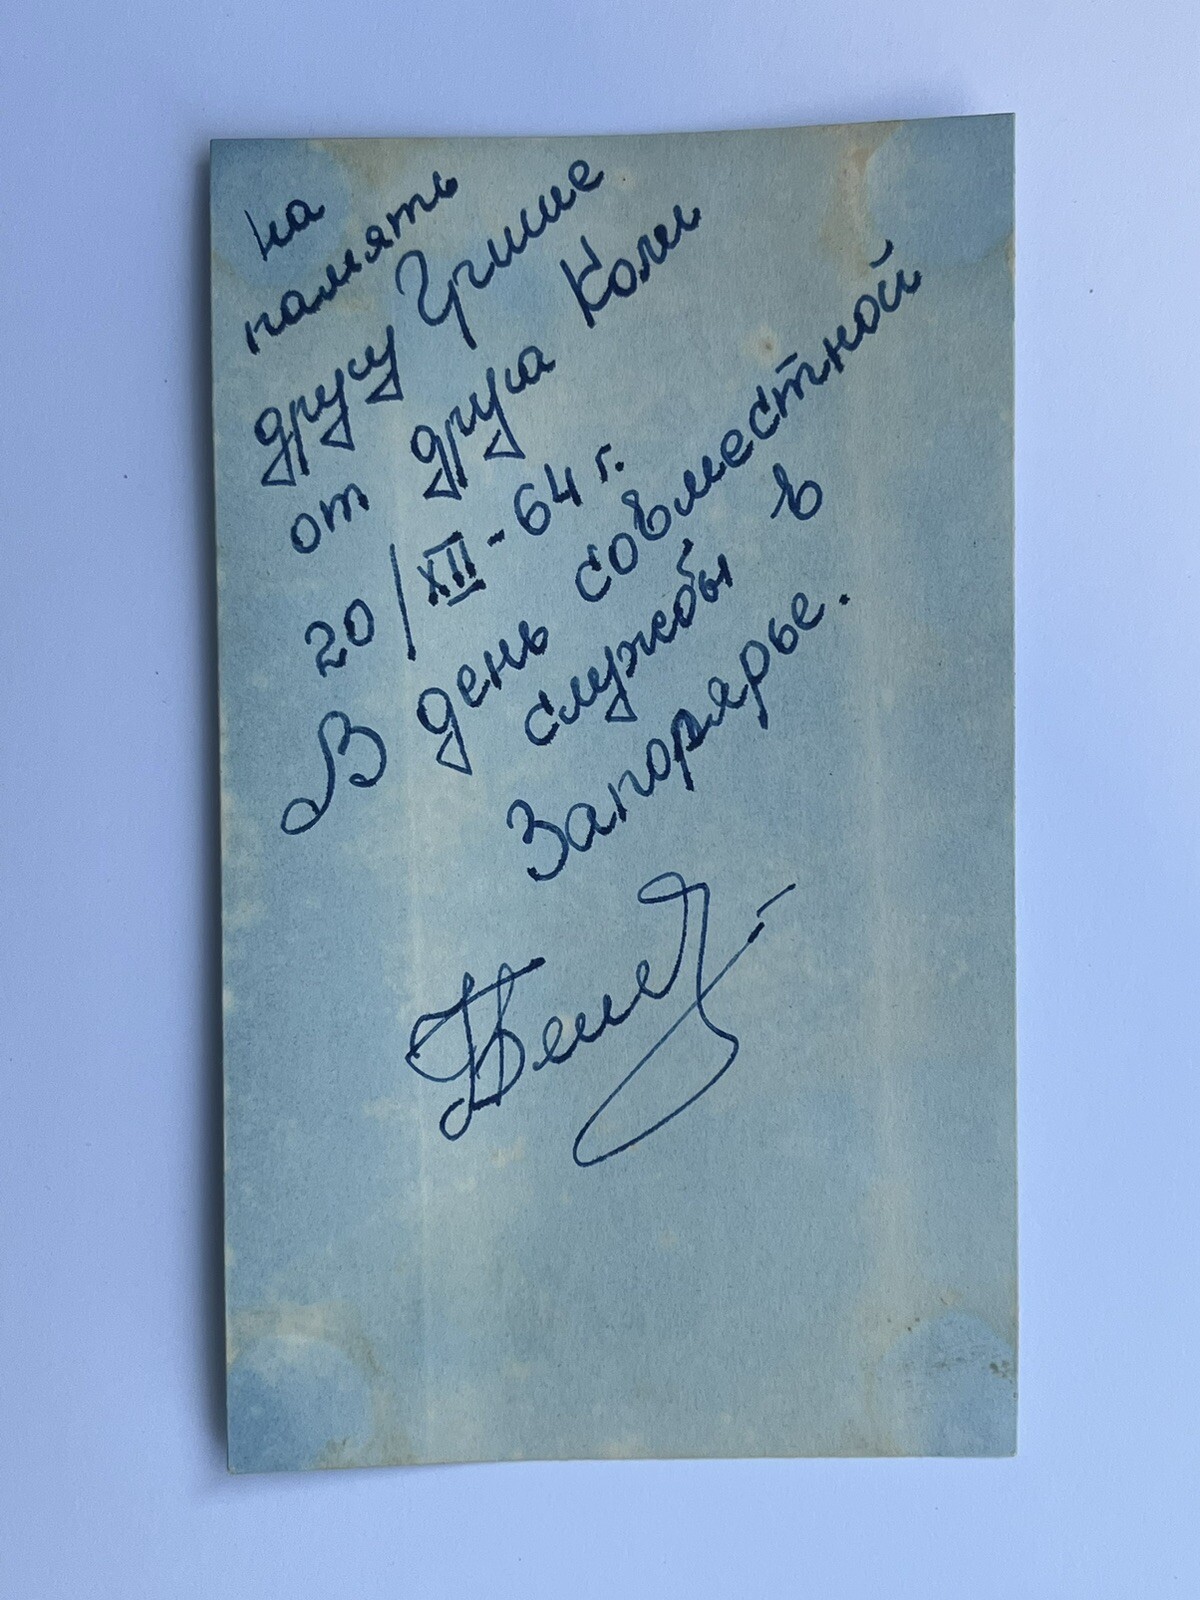 на
память
другу Грише
от друга Коли
20/XII-64 г.
В день совместной
службы в
Заполярье.